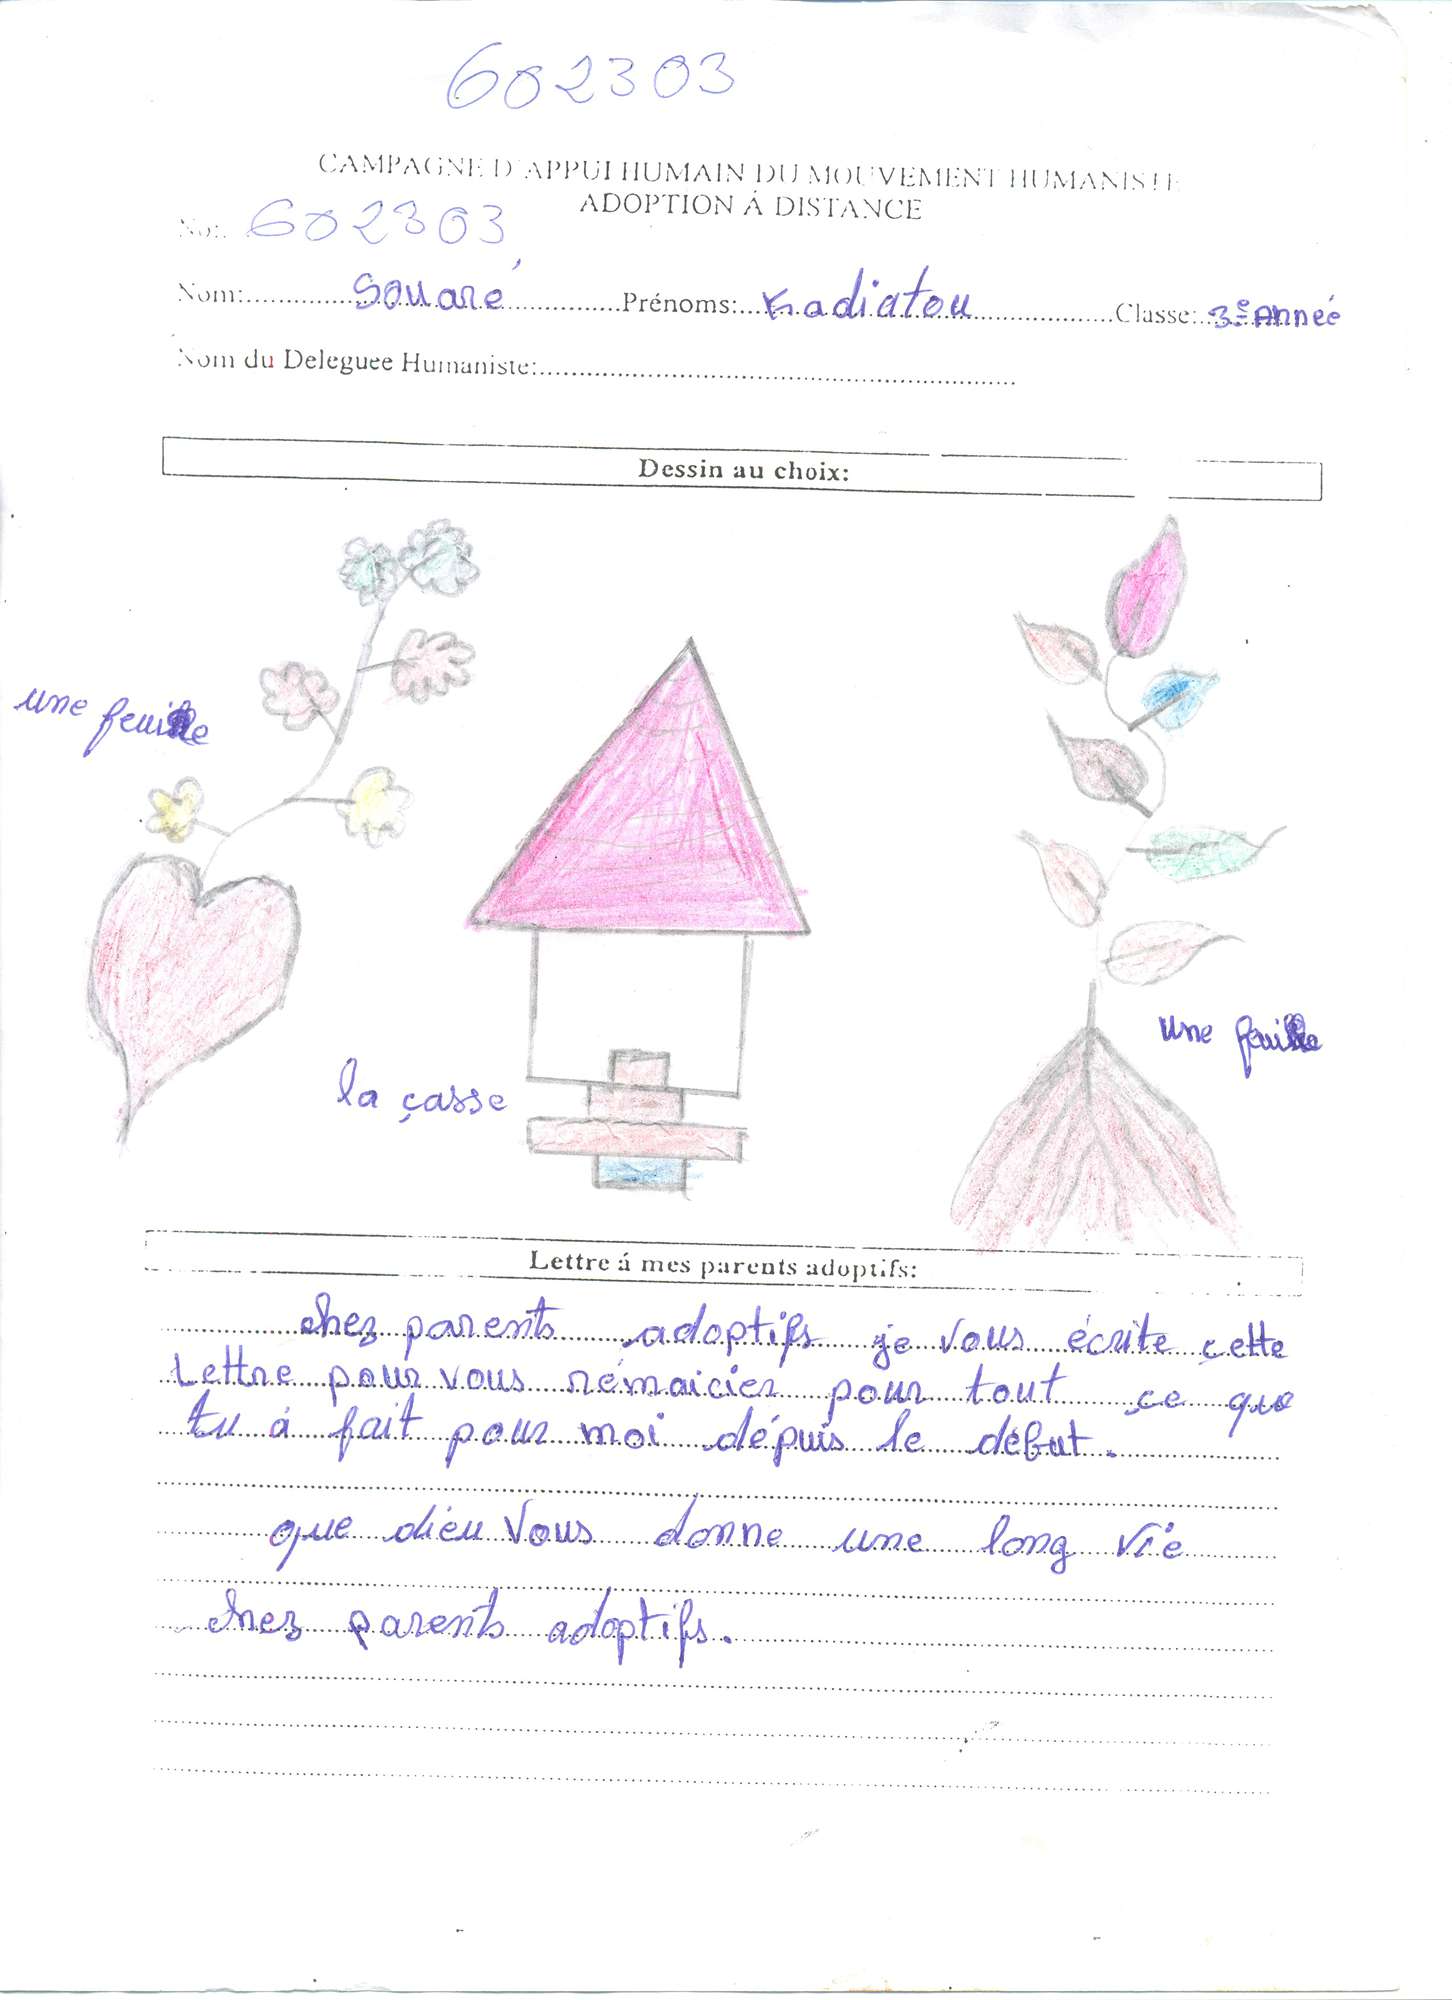 602303
CAMPAGNE D'APPUI HUMAIN DU MOUVEMENT HUMANISTE
ADOPTION Á DISTANCE
No: 602303
Nom: Souaré Prénoms: Kadiatou Classe: 3e Année
Nom du Deleguee Humaniste:
Dessin au choix:
une feuille
la çasse
une feuille
Lettre á mes parents adoptifs:
chez parents adoptifs je vous écrite cette
Lettre pour vous rémaicier pour tout ce que
tu à fait pour moi dépuis le début.
que dieu vous donne une long vie
chez parents adoptifs.